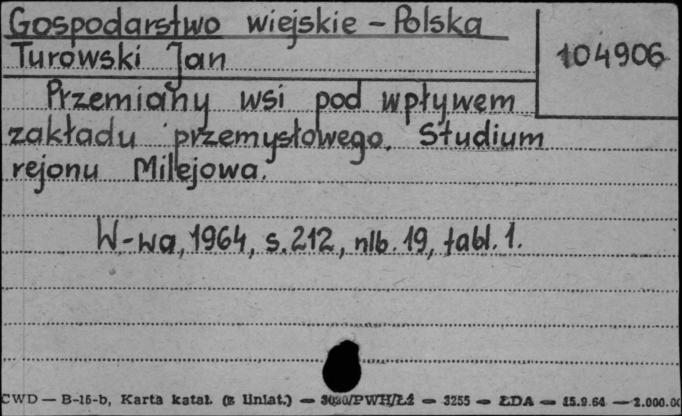 Gospodarstwo wiejskie - Polska
Turowski Jan
104906
Przemiany wsi pod wpływem
zakładu przemysłowego. Studium
rejonu Milejowa.
W-wa, 1964, s. 212, nlb. 19, tabl. 1.
CWD — B-15-b, Karta katal. (z liniat.) — /PWH/Łź — 3255 — ŁDA — 15.9.64 — 2.000.00